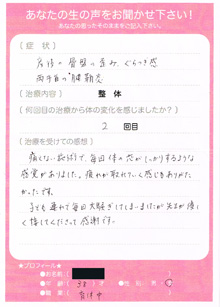 あなたの生の声をお聞かせ下さい!
あなたの思ったそのままをご記入下さい。
【症 状】
左右の骨盤の歪み、ぐらつき感
両手首の腱鞘炎
【治療内容】 整 体
【何回目の治療から体の変化を感じましたか?】
2 回目
【治療を受けての感想】
痛くない施術で、毎回体の芯がしっかりするような
感覚がありました。疲れが取れていく感じもありがた
かったです。
子ども連れで毎回大騒ぎしてしまいましたが先生が優し
く接してくださって感謝です。
★プロフィール★
●お名前:
●年 齢:( 38 )才 ●性 別: 男 ・ 女
●職 業:( 育休中 )